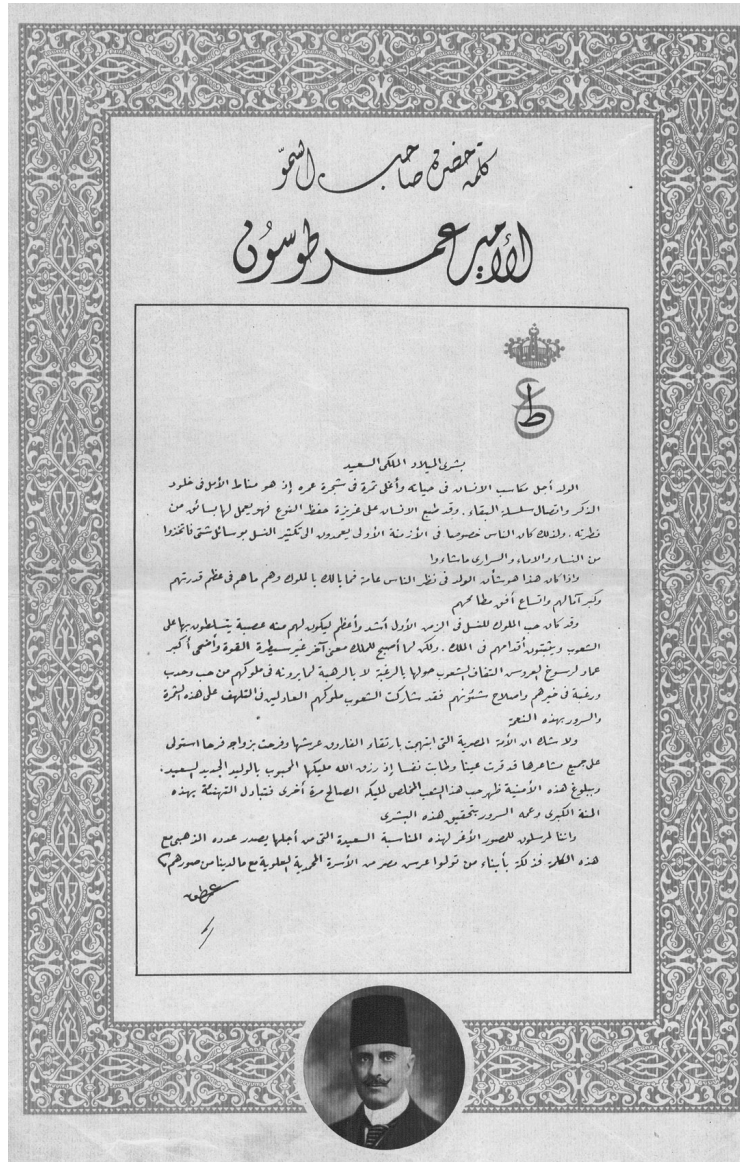 كلمة حضرة صاحب السموّ
الأمير عمر طوسون
ط
بشرى الميلاد الملكى السعيد
الولد أجل مكاسب الانسان فى حياته وأغلى ثمرة فى شجرة عمره إذ هو مناط الأمل فى خلود
الذكر واتصال سلسلة البقاء . وقد طبع الانسان على غريزة حفظ النوع فهو يعمل لها بسائق من
فطرته . ولذلك كان الناس خصوصا فى الأزمنة الأولى يعمدون الى تكثير النسل بوسائل شتى فاتخذوا
من النساء والاماء والسرارى ماشاءوا
واذا كان هذا هو شأن الولد فى نظر الناس عامة فما بالك بالملوك وهم ما هم فى عظم قدرتهم
وكبر آمالهم واتساع أفق مطامحهم
وقد كان حب الملوك للنسل فى الزمن الأول أشد وأعظم ليكون لهم منه عصبية يتسلطون بها على
الشعوب ويثبتون أقدامهم فى الملك . ولكن لما أصبح للملك معنى آخر غير سيطرة القوة وأضحى أكبر
عماد لرسوخ العروش التفاف الشعوب حولها بالرغبة لا بالرهبة لما يرونه فى ملوكهم من حب وحدب
ورغبة فى خيرهم واصلاح شئونهم فقد شاركت الشعوب ملوكهم العادلين فى التلهف على هذه الثمرة
والسرور بهذه النعمة
ولا شك ان الأمة المصرية التى ابتهجت بارتقاء الفاروق عرشها وفرحت بزواجه فرحا استولى
على جميع مشاعرها قد قرت عينا وطابت نفسا إذ رزق الله مليكها المحبوب بالوليد الجديد السعيد .
وببلوغ هذه الأمنية ظهر حب هذا الشعب المخلص لمليكه الصالح مرة أخرى فتبادل التهنئة بهذه
المنة الكبرى وعمه السرور بتحقيق هذه البشرى
واننا لمرسلون للمصور الأغر لهذه المناسبة السعيدة التى من أجلها يصدر عدده الذهبى مع
هذه الكلمة فذلكة بأبناء من تولوا عرش مصر من الأسرة المحمدية العلوية مع ما لدينا من صورهم